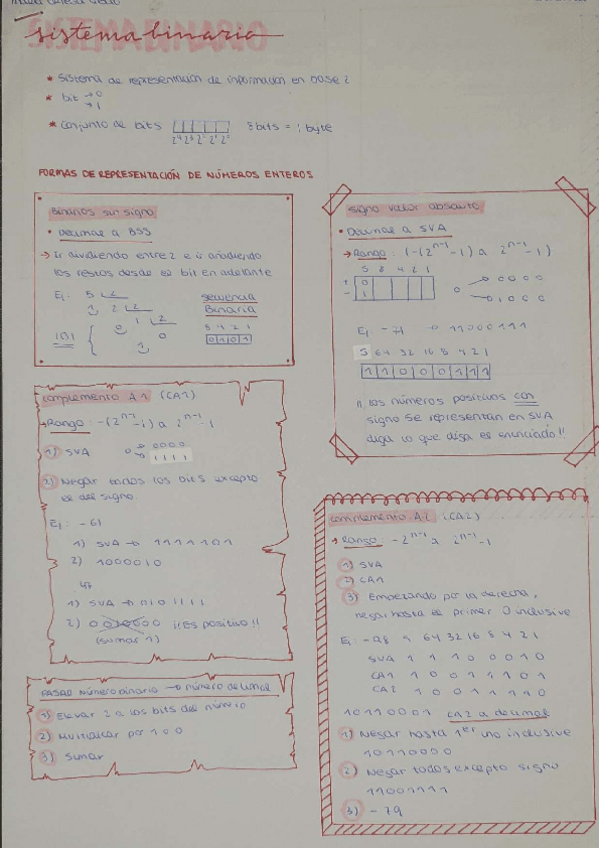 SISTEMA BINARIO
sistema binario
* Sistema de representación de información en base 2
* bit → 0
→ 1
* Conjunto de bits 8 bits = 1 byte
2⁴ 2³ 2² 2¹ 2⁰
FORMAS DE REPRESENTACIÓN DE NÚMEROS ENTEROS
Binarios sin signo
• Decimal a BSS
→ Ir dividiendo entre 2 e ir añadiendo
los restos desde el bit en adelante
Ej: 5 2
1 2 2
0 1 2
1 0
101
secuencia
Binaria
8 4 2 1
0 1 0 1
signo valor absoluto
• Decimal a SVA
→ Rango: (-(2ⁿ⁻¹-1) a 2ⁿ⁻¹-1)
S 8 4 2 1
+ 0
- 1
0 → 0 0 0 0
→ 1 0 0 0
Ej -71 → 11000111
S 64 32 16 8 4 2 1
1 1 0 0 0 1 1 1
¡¡ los números positivos con
signo se representan en SVA
diga lo que diga el enunciado!!
complemento A1 (CA1)
→ Rango: -(2ⁿ⁻¹-1) a 2ⁿ⁻¹-1
1) SVA 0 → 0000
→ 1111
2) Negar todos los bits excepto
el del signo.
Ej: -61
1) SVA → 1111101
2) 1000010
47
1) SVA → 0101111
2) 0010000 ¡¡Es positivo!!
(sumar 1)
PASAR número binario → número decimal
1) Elevar 2 a los bits del número
2) Multiplicar por 1 o 0
3) Sumar
complemento A2 (CA2)
→ Rango: -2ⁿ⁻¹ a 2ⁿ⁻¹-1
1) SVA
2) CA1
3) Empezando por la derecha,
negar hasta el primer 0 inclusive
Ej -98 S 64 32 16 8 4 2 1
SVA 1 1 1 0 0 0 1 0
CA1 1 0 0 1 1 1 0 1
CA2 1 0 0 1 1 1 1 0
10110001 CA2 a decimal
1) Negar hasta 1er uno inclusive
10110000
2) Negar todos excepto signo
11001111
3) -79